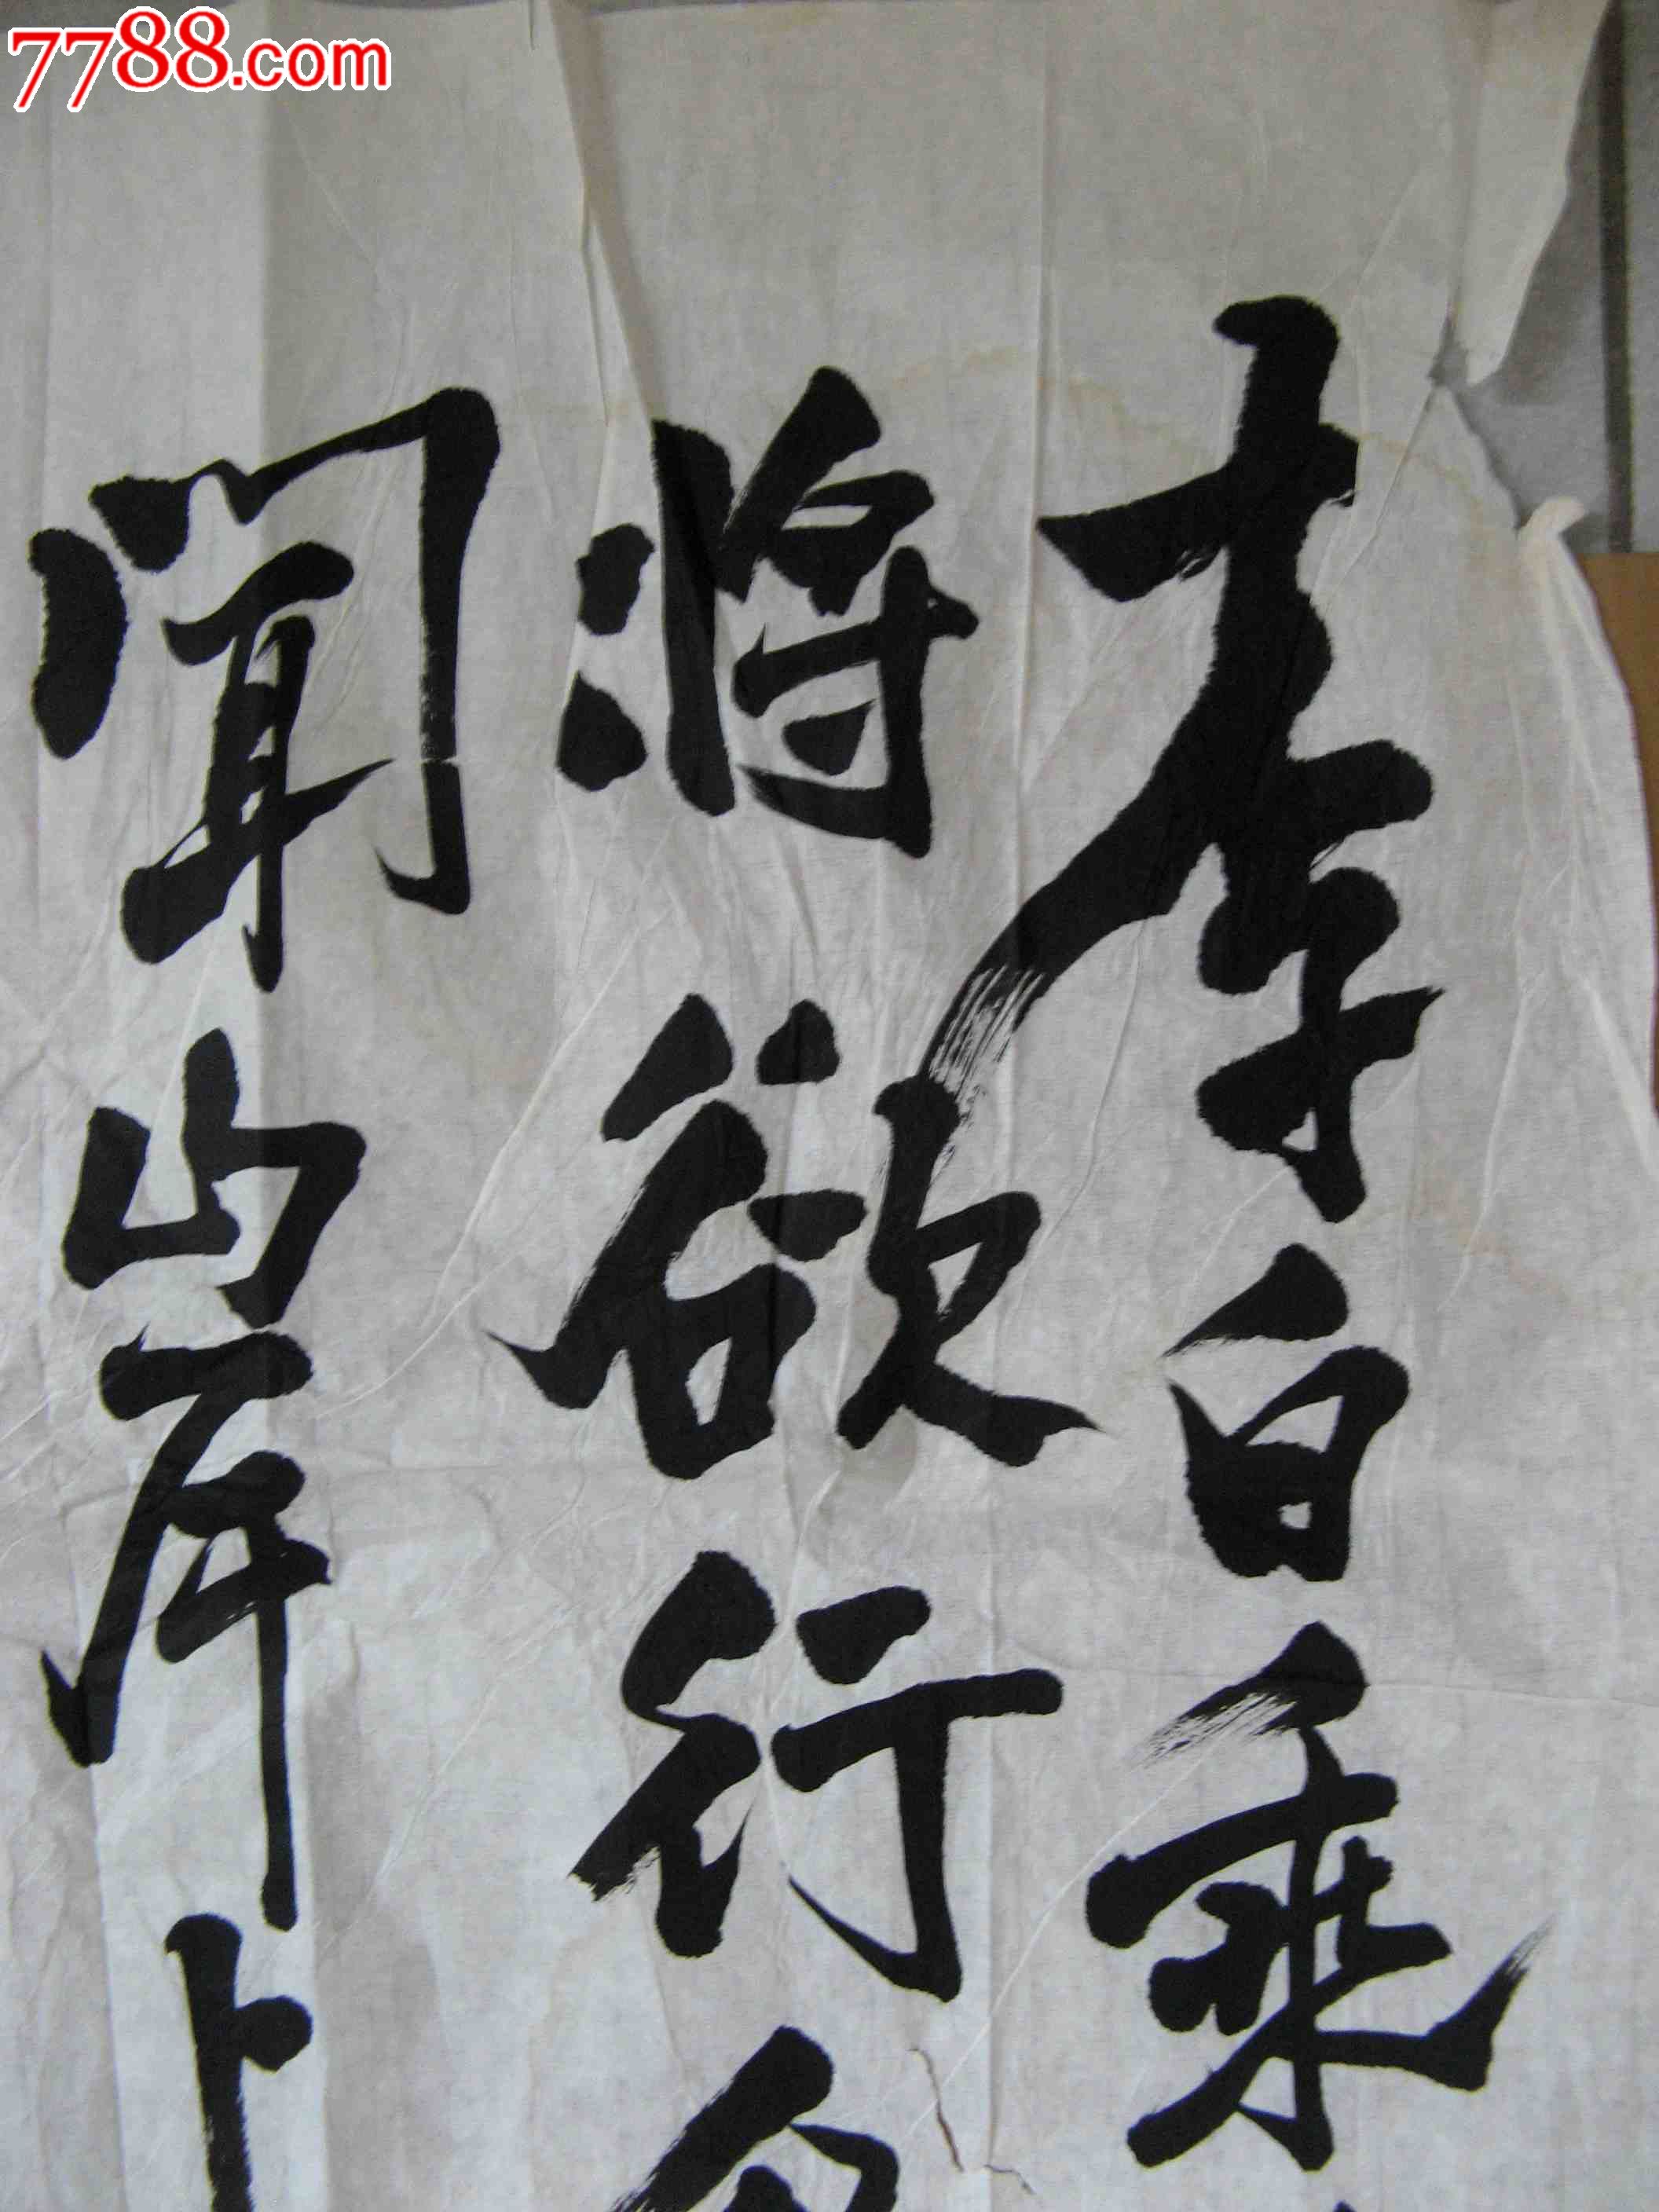 7788.com
李白乘
将欲行
闻岸上